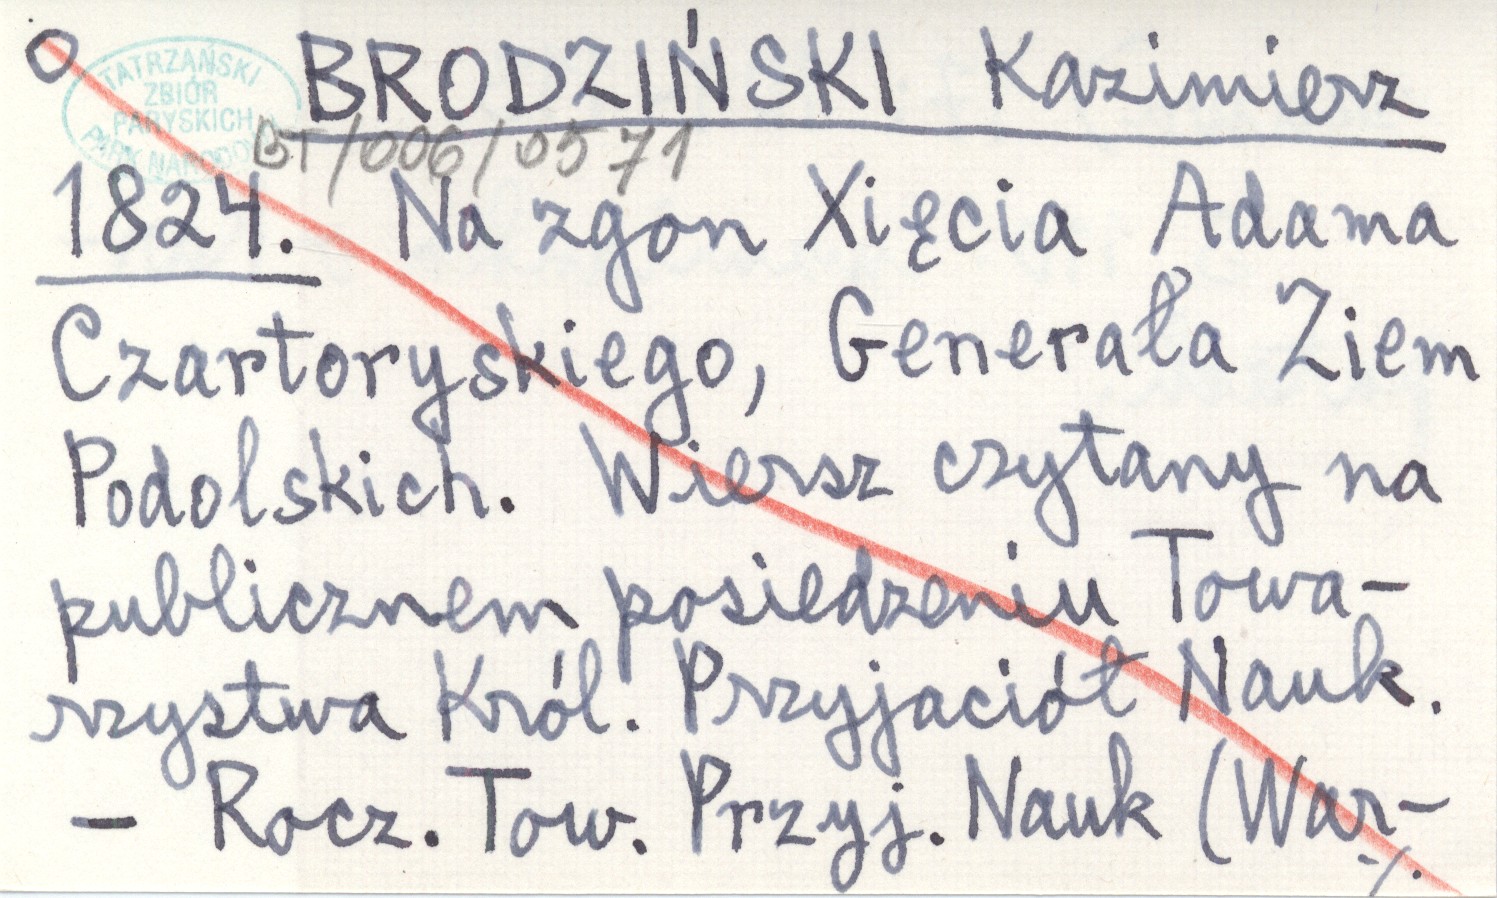 O
TATRZAŃSKI
ZBIÓR
PARYSKICH
PARK NARODOWY
BRODZIŃSKI Kazimierz
BT/006/0571
1824. Na zgon Xięcia Adama
Czartoryskiego, Generała Ziem
Podolskich. Wiersz czytany na
publicznem posiedzeniu Towa-
rzystwa Król. Przyjaciół Nauk.
– Rocz. Tow. Przyj. Nauk (War-
./.